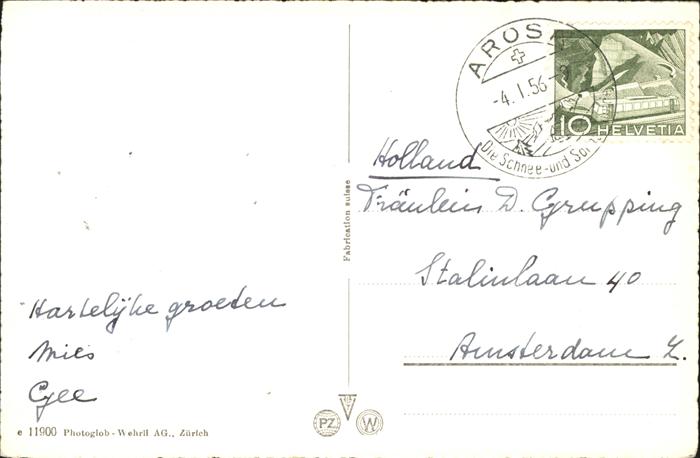 AROSA
-4.I.56-
Die Schnee-und
10 HELVETIA
Holland
Fräulein D. Grupping
Stalinlaan 40
Amsterdam Z.
Fabrication suisse
Hartelijke groeten
Mies
Gee
e 11900 Photoglob-Wehrli AG., Zürich
PZ
W